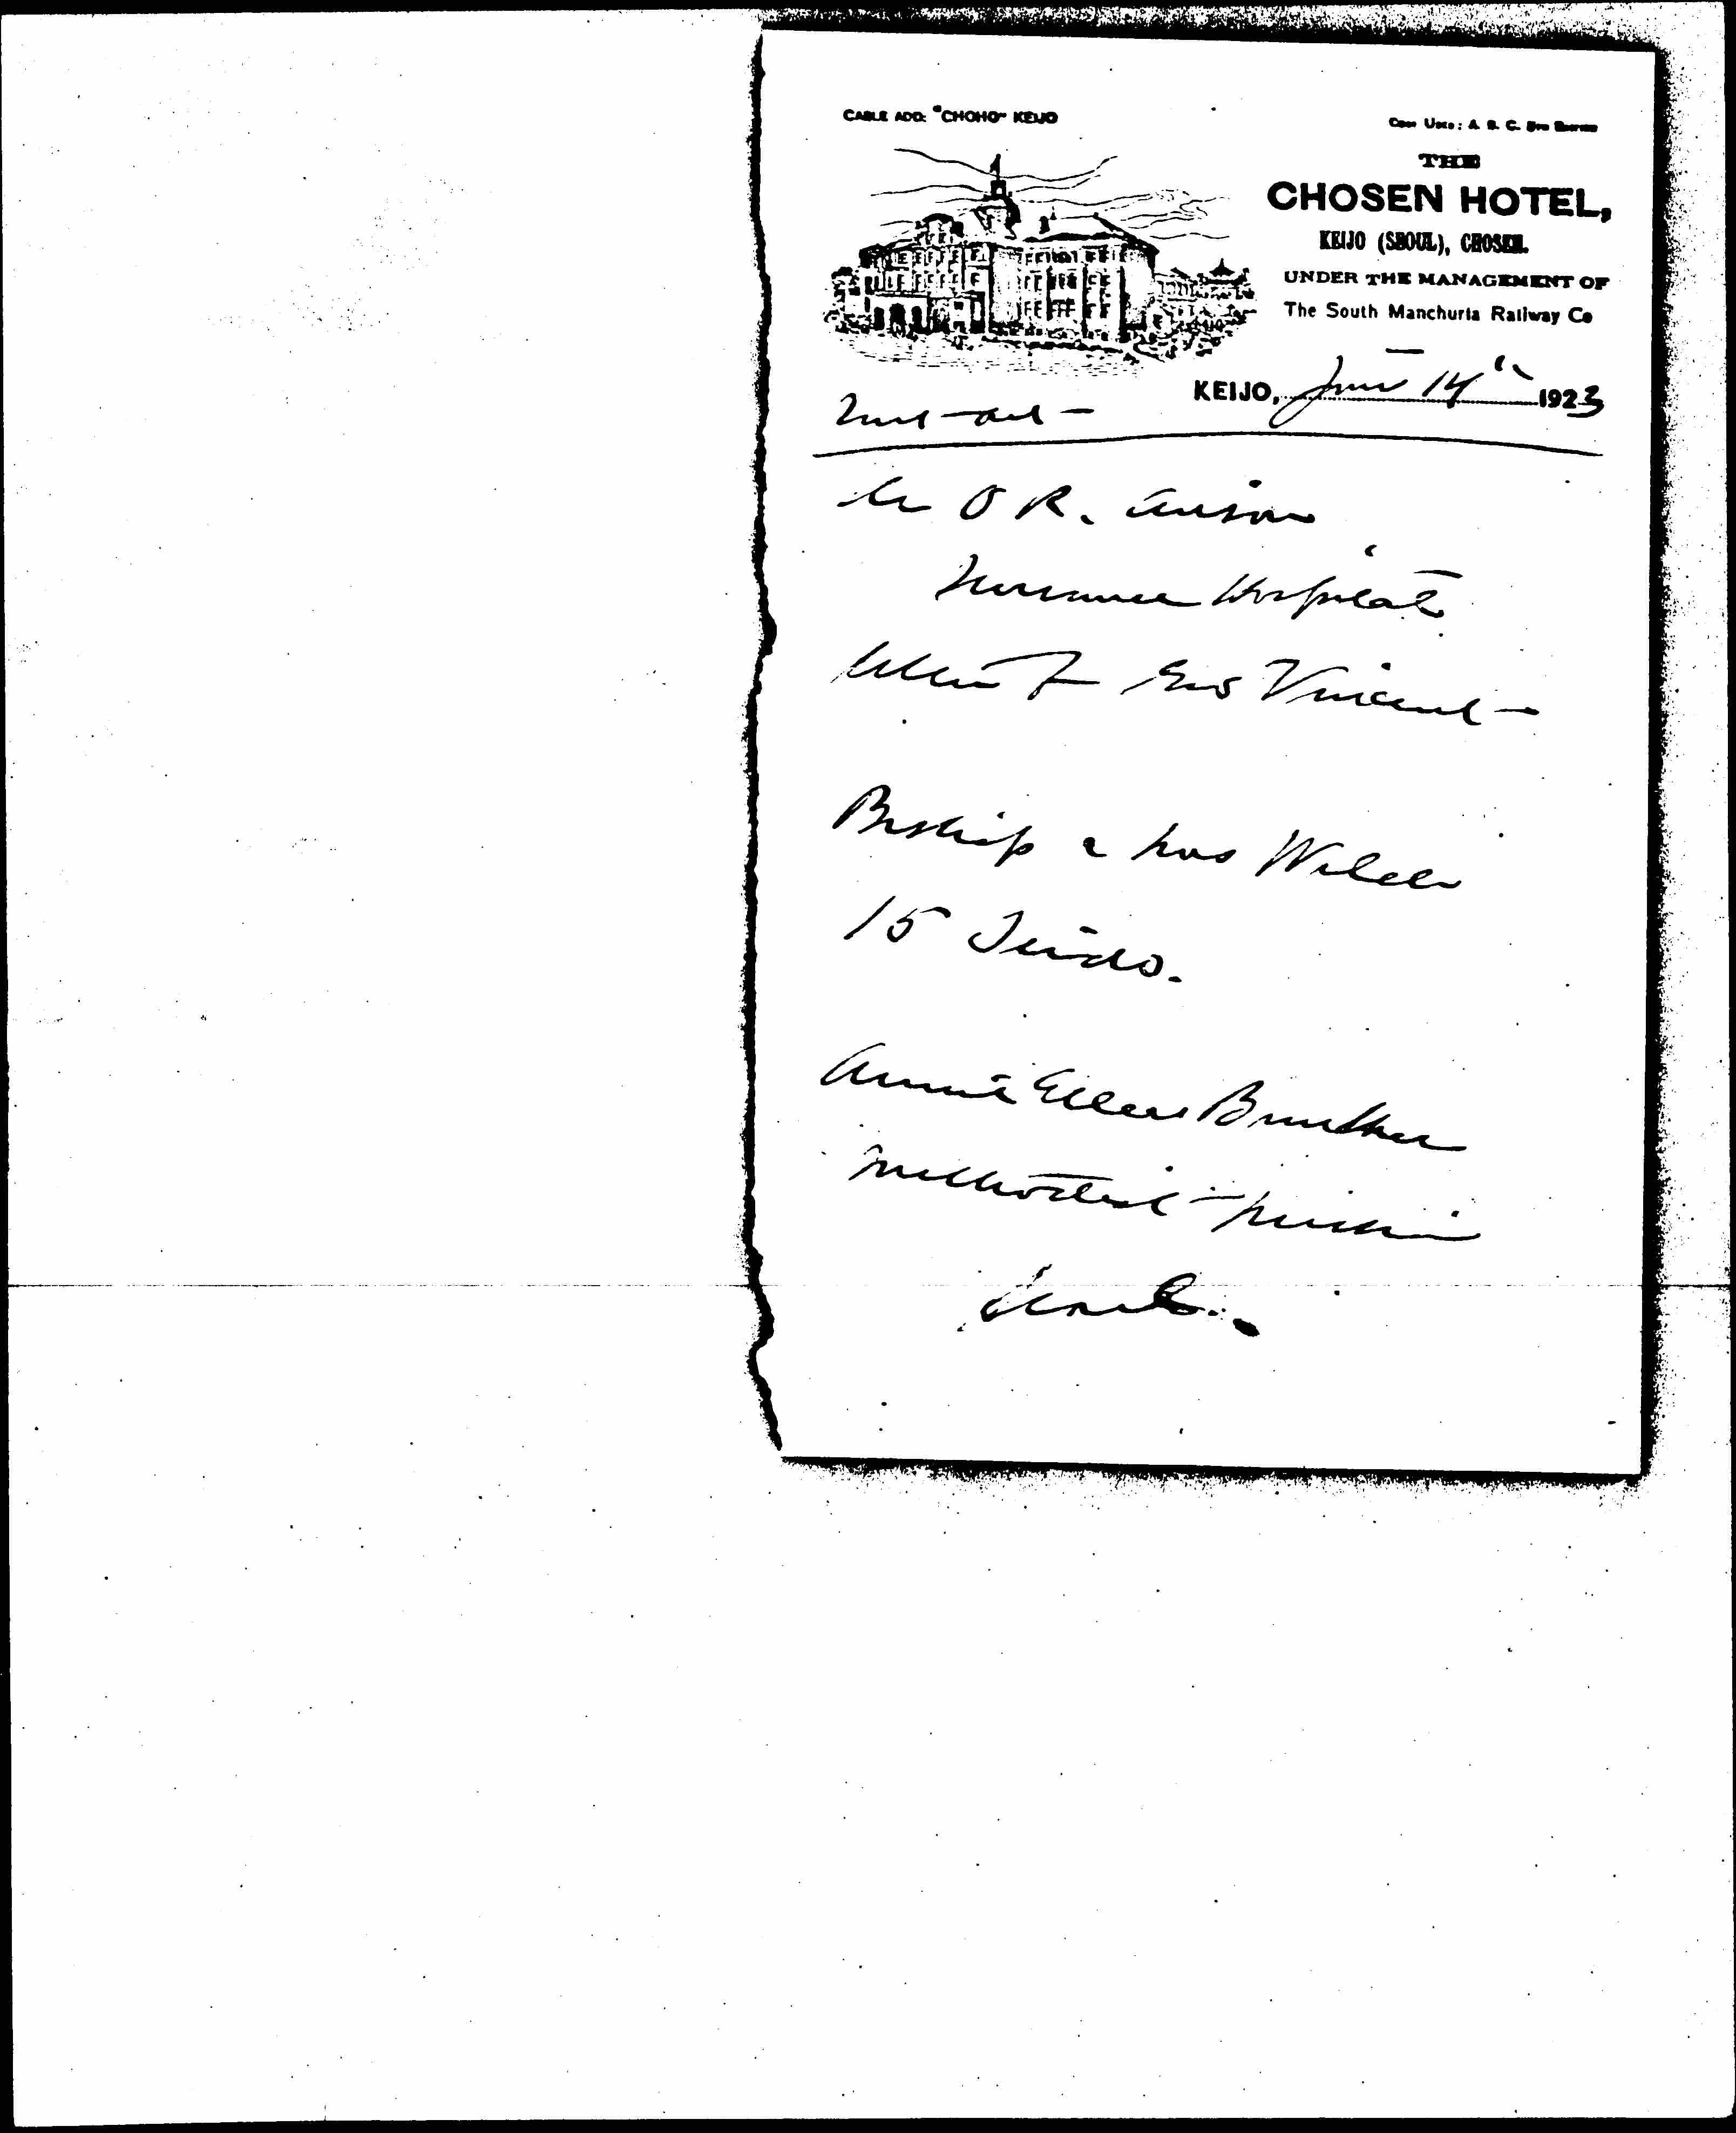 CABLE ADD: "CHOHO" KEIJO
CODE USED: A. B. C. 5TH EDITION
THE
CHOSEN HOTEL,
KEIJO (SEOUL), CHOSEN.
UNDER THE MANAGEMENT OF
The South Manchuria Railway Co
KEIJO, June 14th 1923
O R. Avison
Severance Hospital
Vincent -
Bishop & Mrs Welch
15 Teido.
Annie Ellen Bunker
Methodist Mission
Seoul.